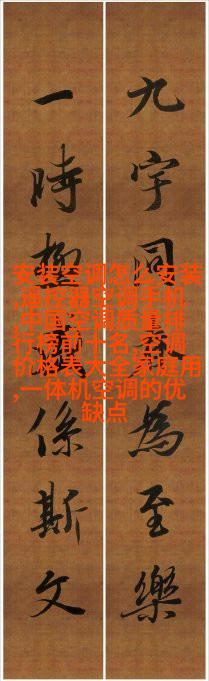 九宇同為至樂
一時係斯文
安装空调怎么安装
,遥控器空调手机
,中国空调质量排
行榜前十名,空调
价格表大全家庭用
,一体机空调的优
缺点